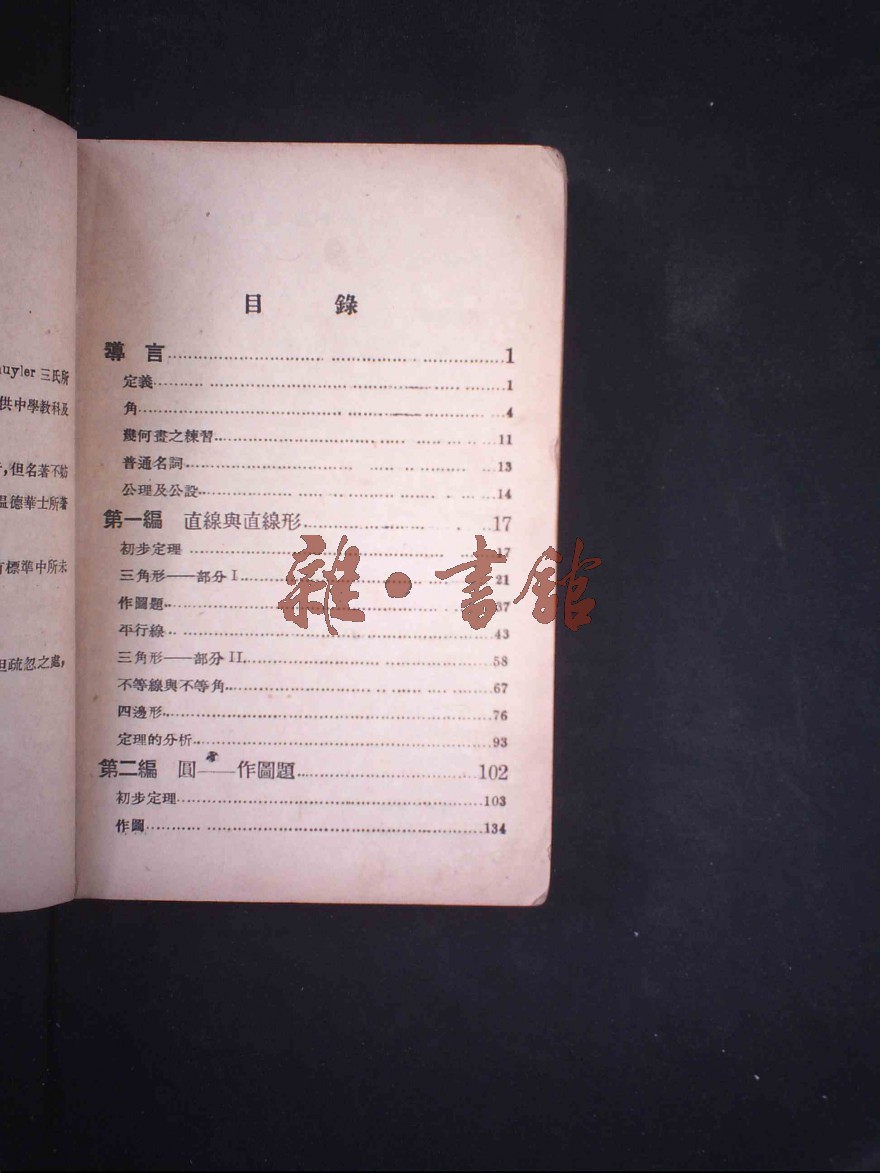 uyler 三氏所
供中學教科及
,但名著不妨
溫德華士所著
有標準中所未
但疏忽之處,
目 錄
導言 1
定義 1
角 4
幾何畫之練習 11
普通名詞 13
公理及公設 14
第一編 直線與直線形 17
初步定理 17
三角形——部分 I 21
作圖題 37
平行線 43
三角形——部分 II 58
不等線與不等角 67
四邊形 76
定理的分析 93
第二編 圓——作圖題 102
初步定理 103
作圖 134
雜·書館